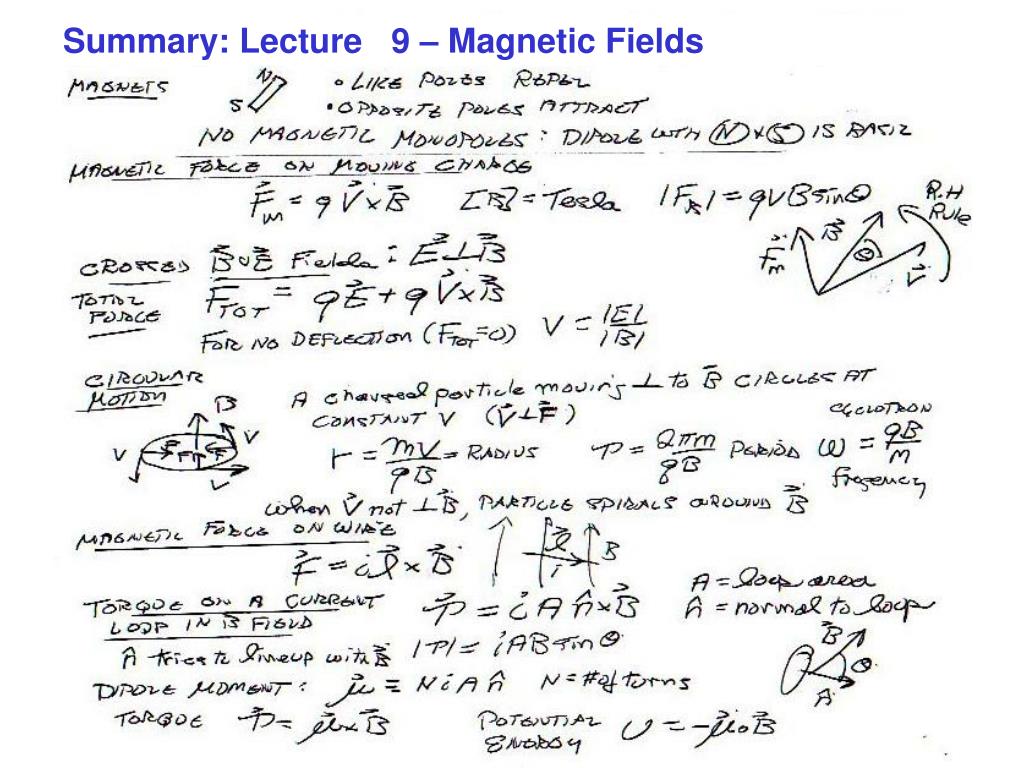 Summary: Lecture 9 – Magnetic Fields
MAGNETS
N
S
• LIKE POLES REPEL
• OPPOSITE POLES ATTRACT
NO MAGNETIC MONOPOLES : DIPOLE WITH (N) & (S) IS BASIC
MAGNETIC FORCE ON MOVING CHARGE
F⃗m = q V⃗ x B⃗ [B] = Tesla |F_B| = qVB sinθ
R.H Rule
F⃗m B⃗ θ V⃗
CROSSED B⃗ & E⃗ Fields : E⃗ ⊥ B⃗
TOTAL FORCE
F⃗TOT = qE⃗ + q V⃗ x B⃗
FOR NO DEFLECTION (FTOT = 0) V = |E|/|B|
CIRCULAR MOTION
A charged particle moving ⊥ to B⃗ CIRCLES AT
CONSTANT V (V⃗ ⊥ F⃗)
B⃗ V V F F V
r = mV/qB = RADIUS τ = 2πm/qB PERIOD ω = qB/m CYCLOTRON frequency
when V⃗ not ⊥ B⃗, PARTICLE SPIRALS AROUND B⃗
MAGNETIC FORCE ON WIRE
F⃗ = i l⃗ x B⃗
l⃗ i B
TORQUE ON A CURRENT
LOOP IN B FIELD
τ⃗ = i A n̂ x B⃗
A = loop area
n̂ = normal to loop
n̂ tries to lineup with B⃗ |τ| = iAB sin θ
B⃗ θ n̂
DIPOLE MOMENT : μ⃗ ≡ N i A n̂ N = # of turns
TORQUE τ⃗ = μ⃗ x B⃗ POTENTIAL ENERGY U = -μ⃗ ∘ B⃗